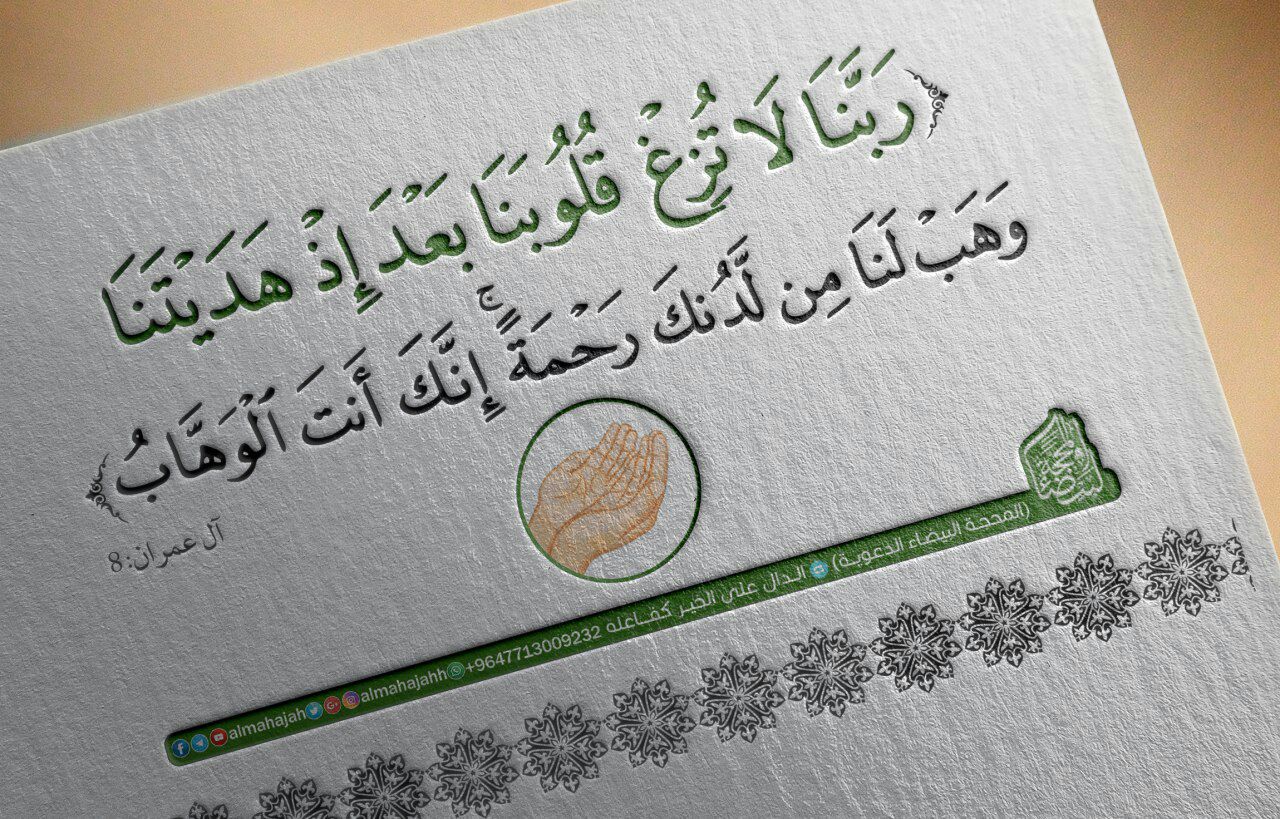 ﴿رَبَّنَا لَا تُزِغْ قُلُوبَنَا بَعْدَ إِذْ هَدَيْتَنَا
وَهَبْ لَنَا مِن لَّدُنكَ رَحْمَةً ۚ إِنَّكَ أَنتَ ٱلْوَهَّابُ﴾
آل عمران:8
المحجة البيضاء
(المحجة البيضاء الدعوية) الدال على الخير كفاعله +9647713009232 almahajahh almahajah